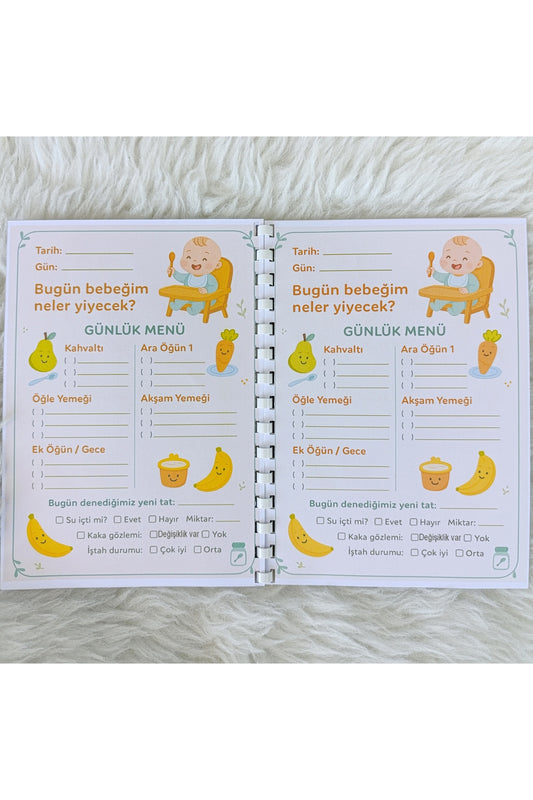 Tarih:
Gün:
Bugün bebeğim
neler yiyecek?
GÜNLÜK MENÜ
Kahvaltı Ara Öğün 1
( )
( )
( )
( )
( )
( )
Öğle Yemeği Akşam Yemeği
( )
( )
( )
( )
( )
( )
Ek Öğün / Gece
( )
( )
( )
Bugün denediğimiz yeni tat:
Su içti mi? Evet Hayır Miktar:
Kaka gözlemi: Değişiklik var Yok
İştah durumu: Çok iyi Orta
Tarih:
Gün:
Bugün bebeğim
neler yiyecek?
GÜNLÜK MENÜ
Kahvaltı Ara Öğün 1
( )
( )
( )
( )
( )
( )
Öğle Yemeği Akşam Yemeği
( )
( )
( )
( )
( )
( )
Ek Öğün / Gece
( )
( )
( )
Bugün denediğimiz yeni tat:
Su içti mi? Evet Hayır Miktar:
Kaka gözlemi: Değişiklik var Yok
İştah durumu: Çok iyi Orta